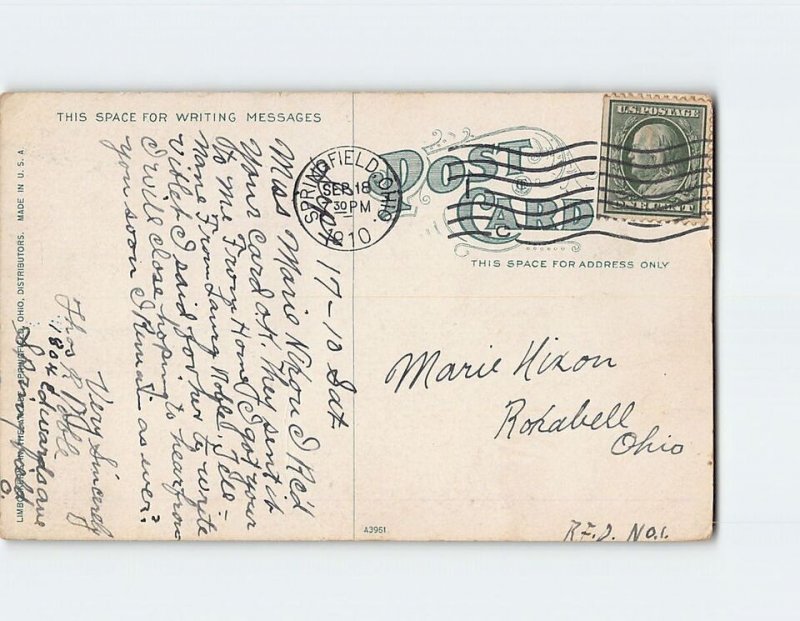 THIS SPACE FOR WRITING MESSAGES
Sept 17-10 Sat
Miss Marie Nixon I Rc'd
Your Card O.K. they sent it
to me From Home I got your
Name From Laury Noble. Tell-
Violet I said for her to write
I will close hoping to hear from
you soon I Remain as ever.
Very Sincerely
Thos R Noble
1804 Edwards ave
Springfield
O.
OHIO, DISTRIBUTORS. MADE IN U.S.A.
SPRINGFIELD, OHIO
SEP 18
30 PM
1910
POST CARD
U.S. POSTAGE
THIS SPACE FOR ADDRESS ONLY
Marie Nixon
Rokabell
Ohio
R.F.D. No.1.
A3961